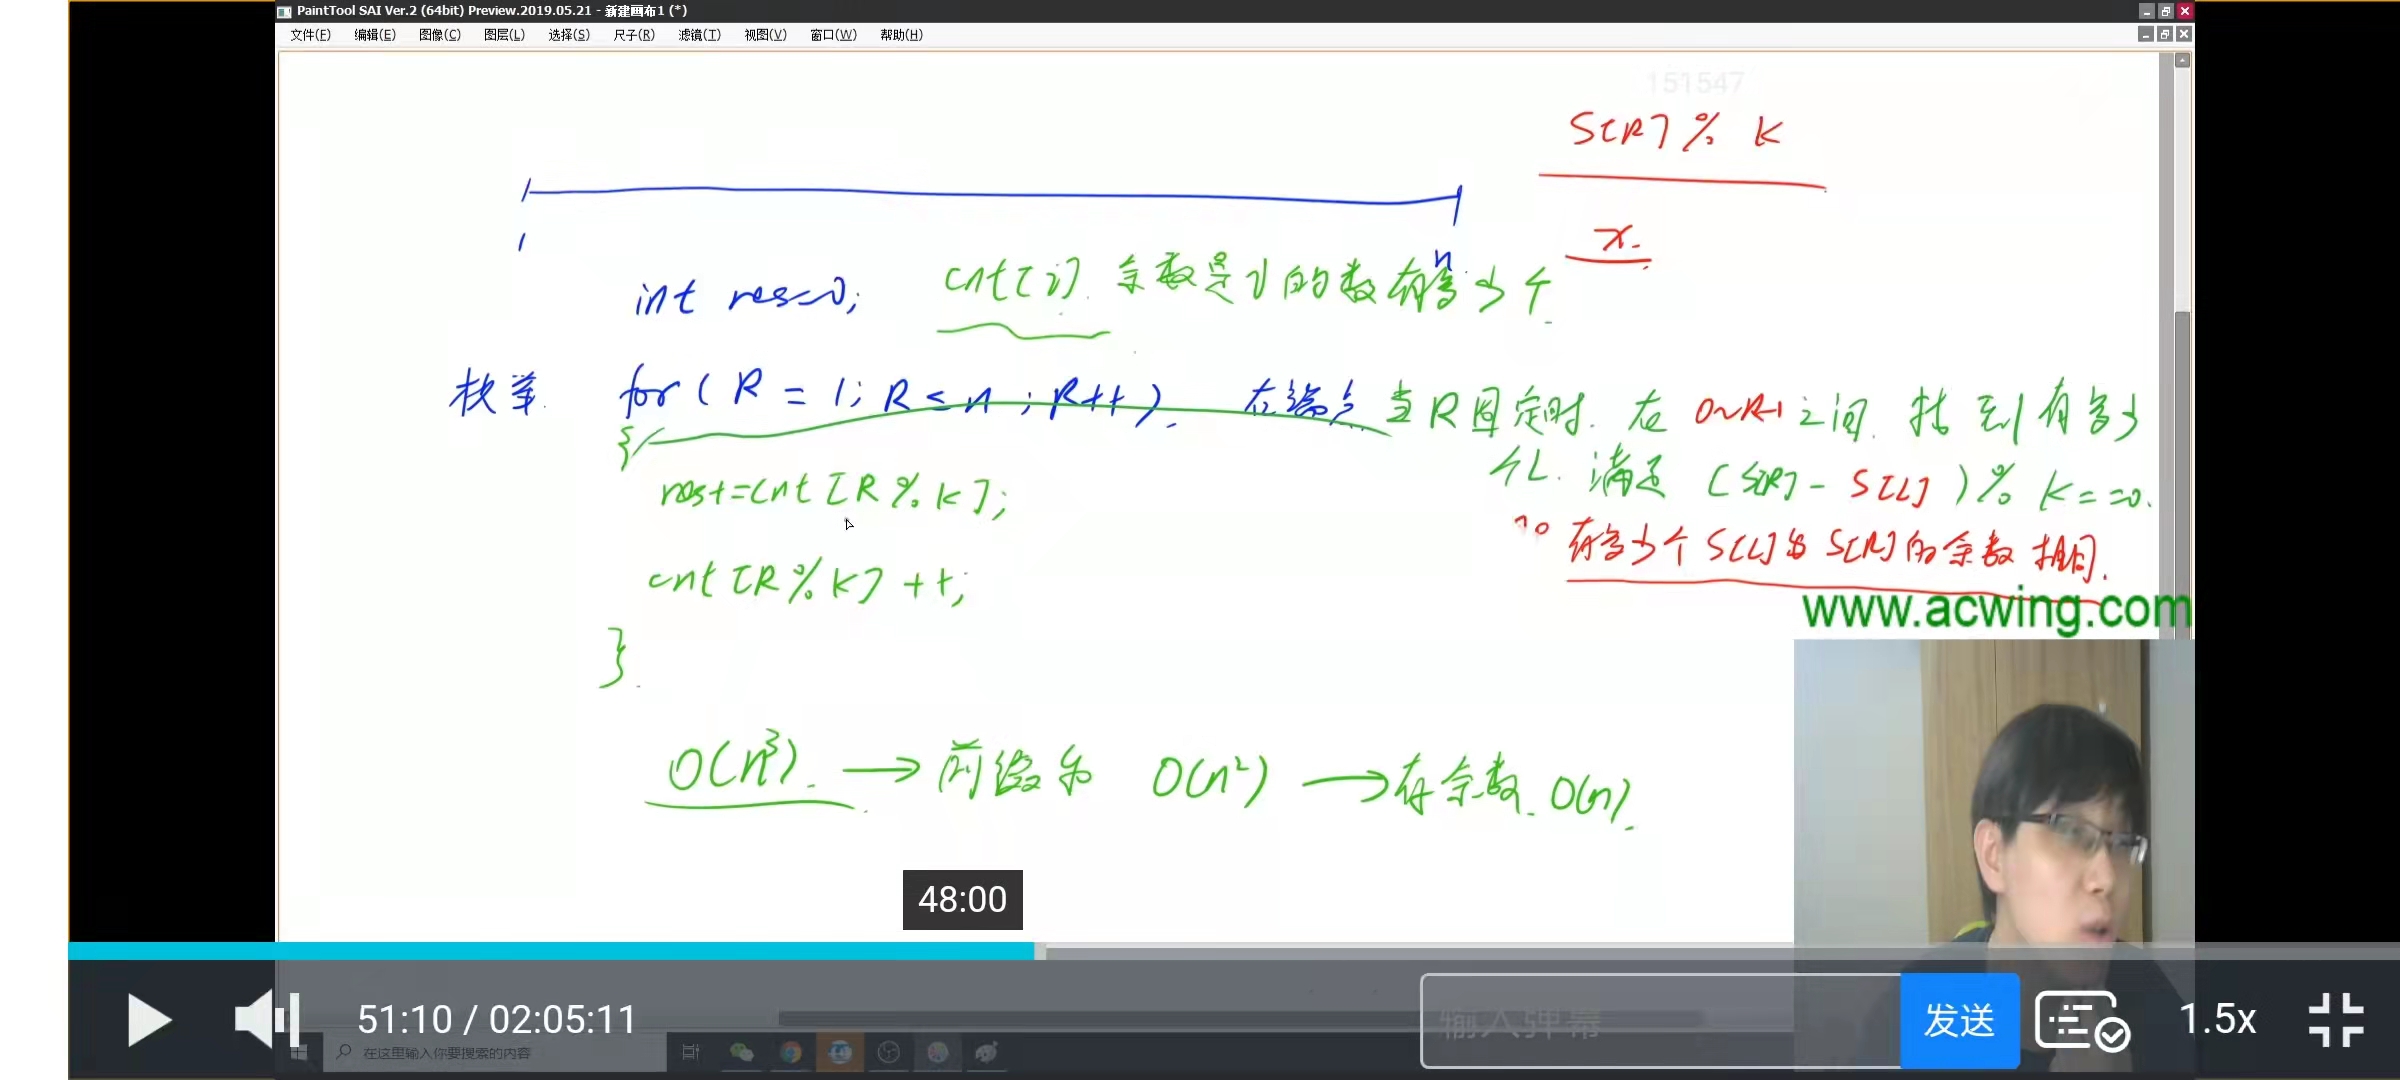 PaintTool SAI Ver.2 (64bit) Preview.2019.05.21 - 新建画布1 (*)
文件(F) 编辑(E) 图像(C) 图层(L) 选择(S) 尺子(R) 滤镜(T) 视图(V) 窗口(W) 帮助(H)
151547
S[R] % K
x.
1
n
int res=0;
cnt[i]. 余数是i的数有多少个
枚举. for( R = 1; R ≤ n ; R++ ). 右端点
当R固定时. 在 0~R-1 之间. 找到有多少
个L. 满足 (S[R] - S[L] ) % K == 0.
有多少个 S[L]与 S[R] 的余数相同.
{
res+=cnt [R % K];
cnt [R % K] ++;
}.
O(n³). → 前缀和 O(n²) → 存余数. O(n).
www.acwing.com
48:00
51:10 / 02:05:11
输入弹幕
发送
1.5x
在这里输入你要搜索的内容